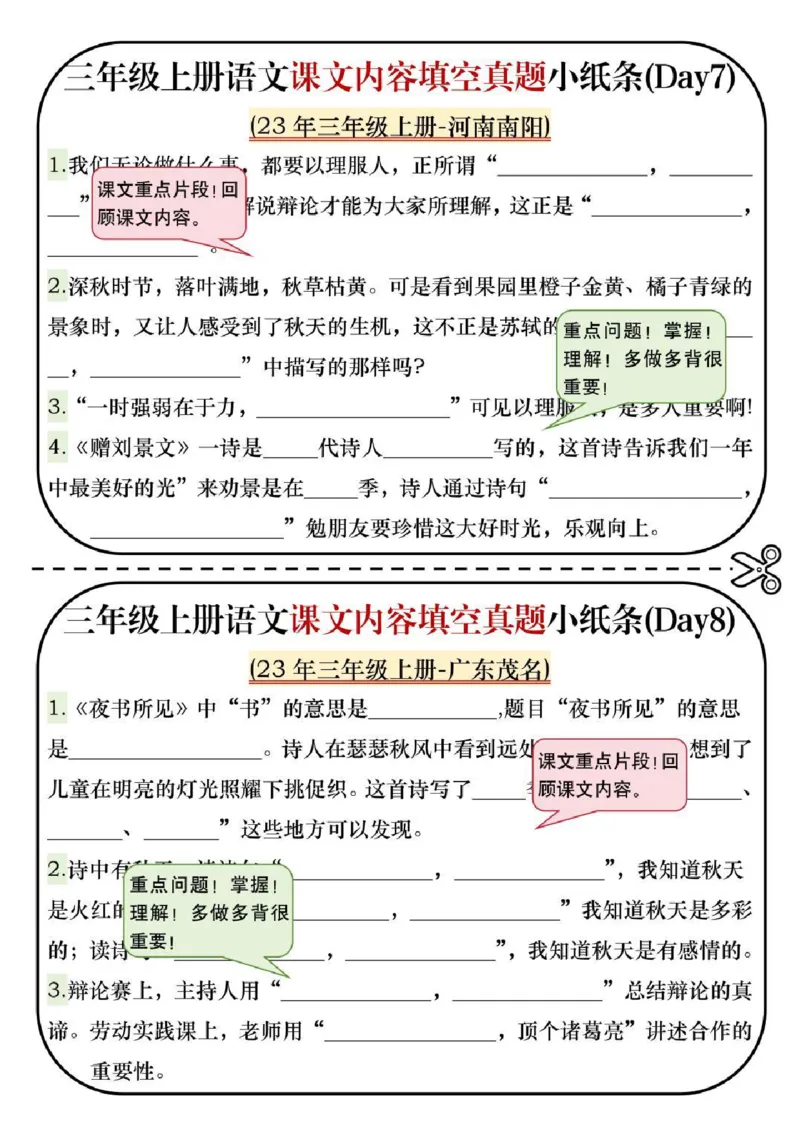 三年级上册语文课文内容填空真题小纸条(Day7)
(23年三年级上册-河南南阳)
1.我们无论做什么事，都要以理服人，正所谓“______________，________
课文重点片段！回
顾课文内容。
___” 解说辩论才能为大家所理解，这正是“______________，
______________”。
2.深秋时节，落叶满地，秋草枯黄。可是看到果园里橙子金黄、橘子青绿的
景象时，又让人感受到了秋天的生机，这不正是苏轼的
重点问题！掌握！
理解！多做多背很
重要！
__，______________”中描写的那样吗？
3.“一时强弱在于力，__________________”可见以理服人，是多么重要啊!
4.《赠刘景文》一诗是_____代诗人__________写的，这首诗告诉我们一年
中最美好的光”来劝景是在_____季，诗人通过诗句“__________________，
__________________”勉朋友要珍惜这大好时光，乐观向上。
三年级上册语文课文内容填空真题小纸条(Day8)
(23年三年级上册-广东茂名)
1.《夜书所见》中“书”的意思是____________,题目“夜书所见”的意思
是__________________。诗人在瑟瑟秋风中看到远处 想到了
课文重点片段！回
顾课文内容。
儿童在明亮的灯光照耀下挑促织。这首诗写了_____ _____、
_______、_______”这些地方可以发现。
2.诗中有 “______________，______________”，我知道秋天
重点问题！掌握！
理解！多做多背很
重要！
是火红的 __________，______________”我知道秋天是多彩
的；读诗 ______________，______________”，我知道秋天是有感情的。
3.辩论赛上，主持人用“______________，______________”总结辩论的真
谛。劳动实践课上，老师用“________________，顶个诸葛亮”讲述合作的
重要性。